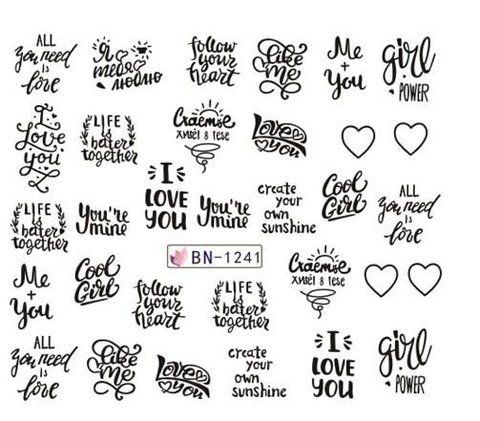 ALL
you need
is
love
Я
тебя
люблю
follow
your
heart
like
me
Me
+
You
girl
POWER
I
Love
you
LIFE
is
bater
together
Счастье
живёт в тебе
Love
you
I
LOVE
YOU
LIFE
is
bater
together
You're
mine
You're
mine
create
your
own
sunshine
Cool
Girl
ALL
you need
is
love
BN-1241
Me
+
You
Cool
Girl
follow
your
heart
LIFE
is
bater
together
Счастье
живёт в тебе
ALL
you need
is
love
like
me
Love
you
create
your
own
sunshine
I
LOVE
YOU
girl
POWER